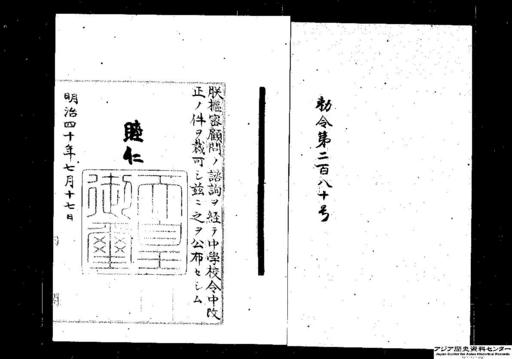 勅令第二百八十号
朕樞密顧問ノ諮詢ヲ経テ中學校令中改
正ノ件ヲ裁可シ茲ニ之ヲ公布セシム
睦仁
天皇御璽
明治四十年七月十七日
アジア歴史資料センター
Japan Center for Asian Historical Records